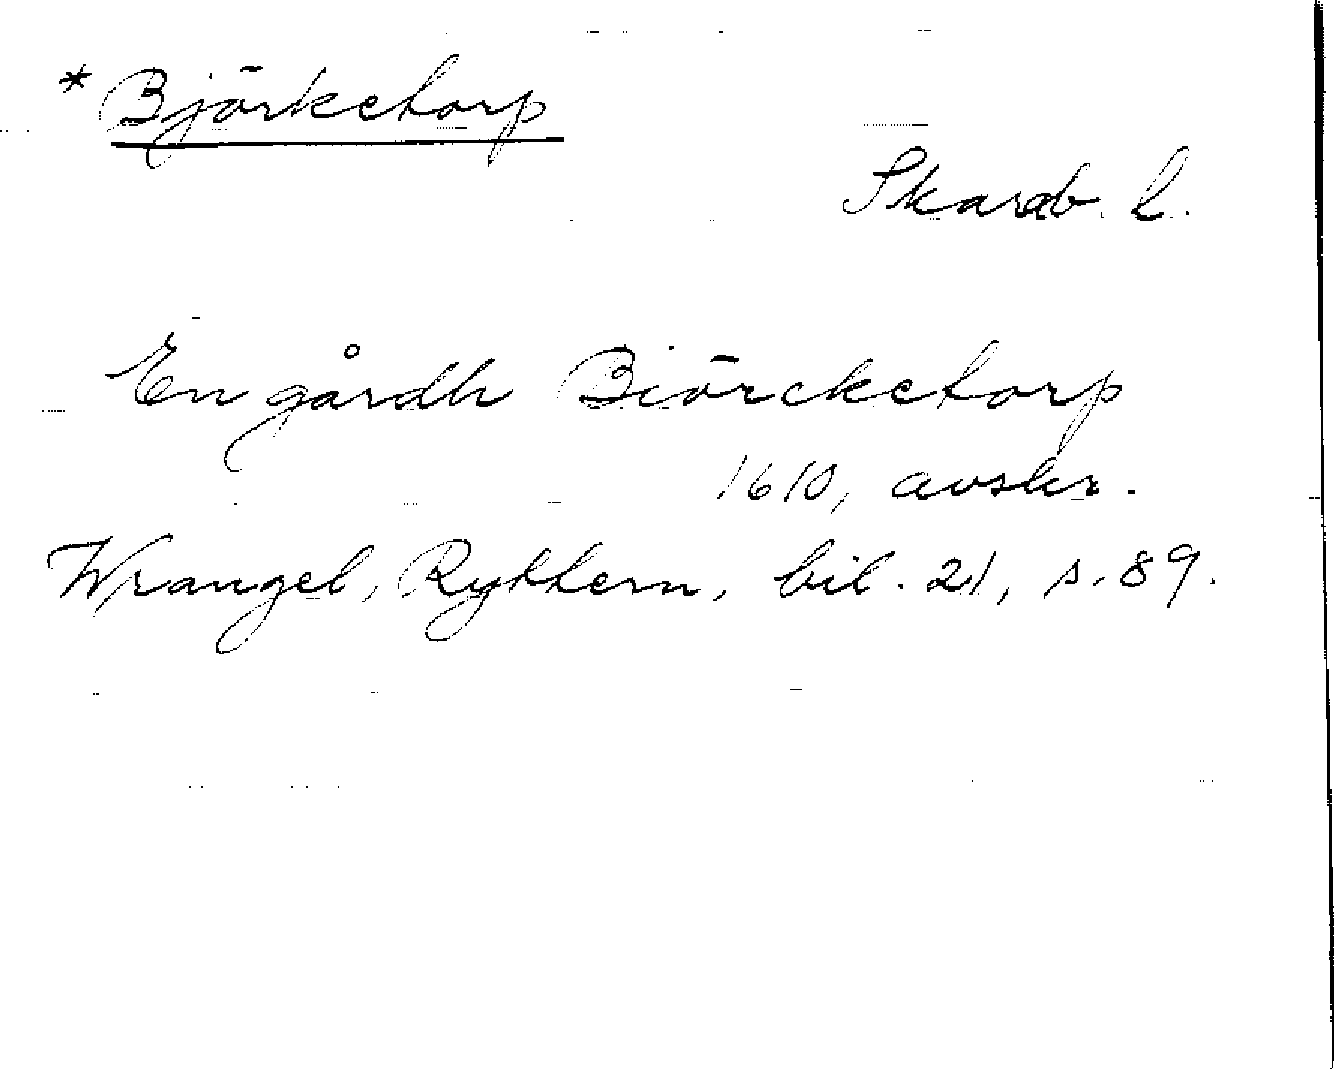 *Björketorp
Skarab. l.
En gårdh Biörcketorp
1610, avskr.
Wrangel, Ryttern, bil. 21, s. 89.